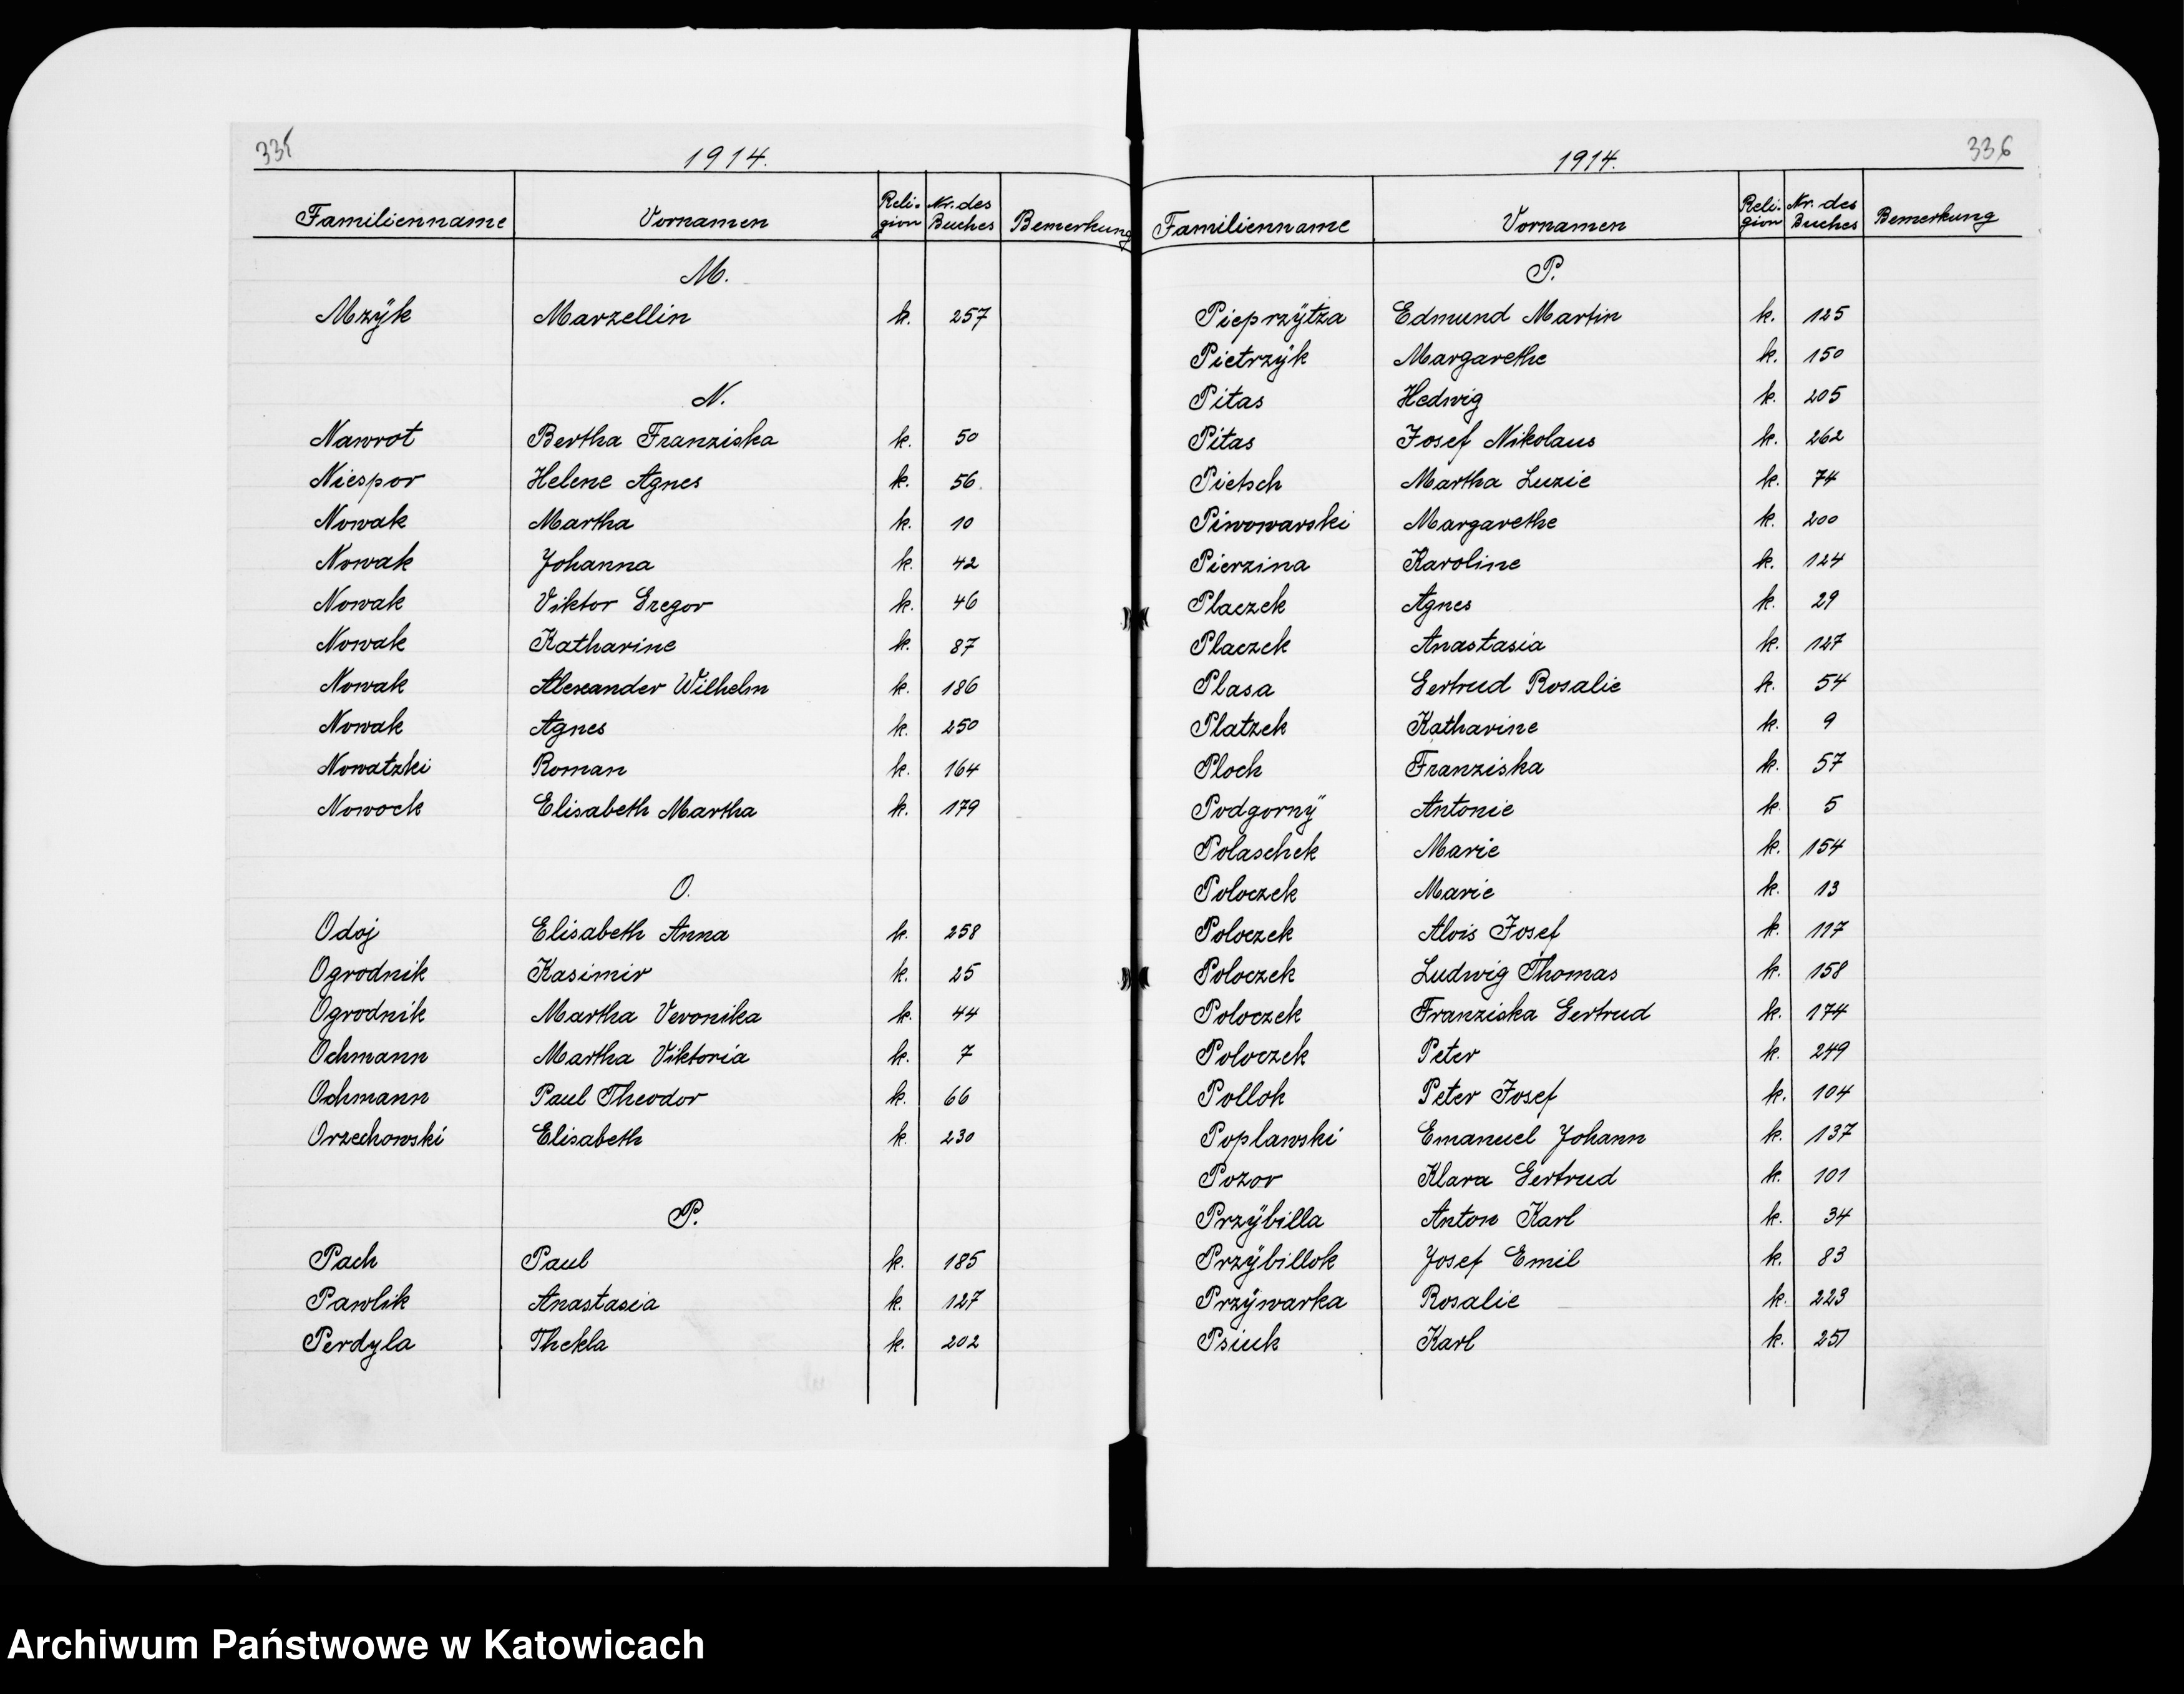 335
1914.
Familienname Vornamen Reli-gion Nr. des Buches Bemerkung
M.
Mzÿk Marzellin k. 257
N.
Nawrot Bertha Franziska k. 50
Niespor Helene Agnes k. 56.
Nowak Martha k. 10
Nowak Johanna k. 42
Nowak Viktor Gregor k. 46
Nowak Katharine k. 87
Nowak Alexander Wilhelm k. 186
Nowak Agnes k. 250
Nowatzki Roman k. 164
Nowock Elisabeth Martha k. 179
O.
Odoj Elisabeth Anna k. 258
Ogrodnik Kasimir k. 25
Ogrodnik Martha Veronika k. 44
Ochmann Martha Viktoria k. 7
Ochmann Paul Theodor k. 66
Orzechowski Elisabeth k. 230
P.
Pach Paul k. 185
Pawlik Anastasia k. 127
Perdyla Thekla k. 202
336
1914.
Familienname Vornamen Reli-gion Nr. des Buches Bemerkung
P.
Pieprzÿtza Edmund Martin k. 125
Pietrzÿk Margarethe k. 150
Pitas Hedwig k. 205
Pitas Josef Nikolaus k. 262
Pietsch Martha Luzie k. 74
Piwowarski Margarethe k. 200
Pierzina Karoline k. 124
Placzek Agnes k. 29
Placzek Anastasia k. 127
Plasa Gertrud Rosalie k. 54
Platzek Katharine k. 9
Ploch Franziska k. 57
Podgornÿ Antonie k. 5
Polaschek Marie k. 154
Poloczek Marie k. 13
Poloczek Alois Josef k. 117
Poloczek Ludwig Thomas k. 158
Poloczek Franziska Gertrud k. 174
Poloczek Peter k. 249
Pollok Peter Josef k. 104
Poplawski Emanuel Johann k. 137
Pozor Klara Gertrud k. 101
Przÿbilla Anton Karl k. 34
Przÿbillok Josef Emil k. 83
Przÿwarka Rosalie k. 223
Psiuk Karl k. 251
Archiwum Państwowe w Katowicach